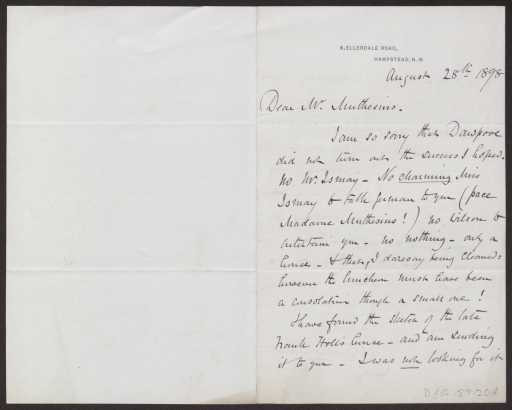 6, ELLERDALE ROAD,
HAMPSTEAD, N.W.
August 28th 1898
Dear Mr. Muthesius.
I am so sorry that Dawpool
did not turn out the success I hoped.
No Mr. Ismay - No charming Miss
Ismay to talk german to you (pace
Madame Muthesius!) no Wilson to
entertain you - no nothing - only a
house - & that, I daresay being cleaned.
However the luncheon must have been
a consolation though a small one!
I have found the sketch of the late
Frank Holl's house - and am sending
it to you - I was not looking for it